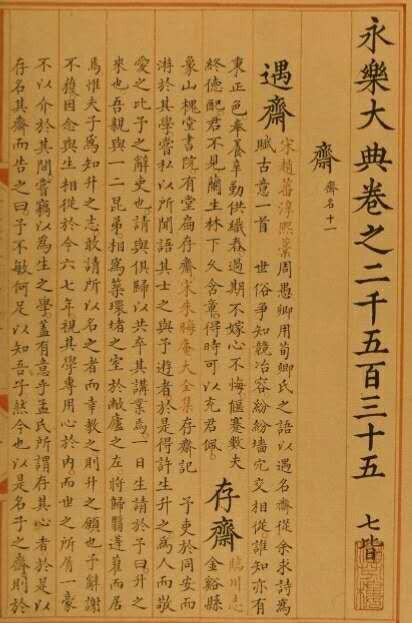 永樂大典卷之二千五百三十五 七皆
齋 齋名十一
遇齋 宋趙蕃淳熙藁周愚卿用荀卿氏之語以遇名齋從余求詩爲
賦古意一首 世俗爭知競冶容紛紛墻穴交相從誰知亦有
東正色奉養辛勤供織舂過期不嫁心不悔偃蹇數夫
終德配君不見蘭生林下久含章得時可以充君佩 存齋 臨川志
金谿縣
象山槐堂書院有堂扁存齋宋朱晦庵大全集存齋記 予吏於同安而
游於其學嘗私以所聞語其士之與予遊者於是得許生升之爲人而敬
愛之比予之辭吏也請與俱歸以共卒其講業焉一日生請於予曰升之
來也吾親與一二昆弟相爲築環堵之室於敝廬之左將歸翳蓬藋而居
焉惟夫子爲知升之志敢請所以名之者而幸教之則升之願也予辭謝
不獲因念與生相從於今六七年視其學專用心於內而世之所屑一豪
不以介於其間嘗竊以爲生之學蓋有意乎孟氏所謂存其心者於是以
存名其齋而告之曰予不敏何足以知吾子然今也以是名子之齋則於